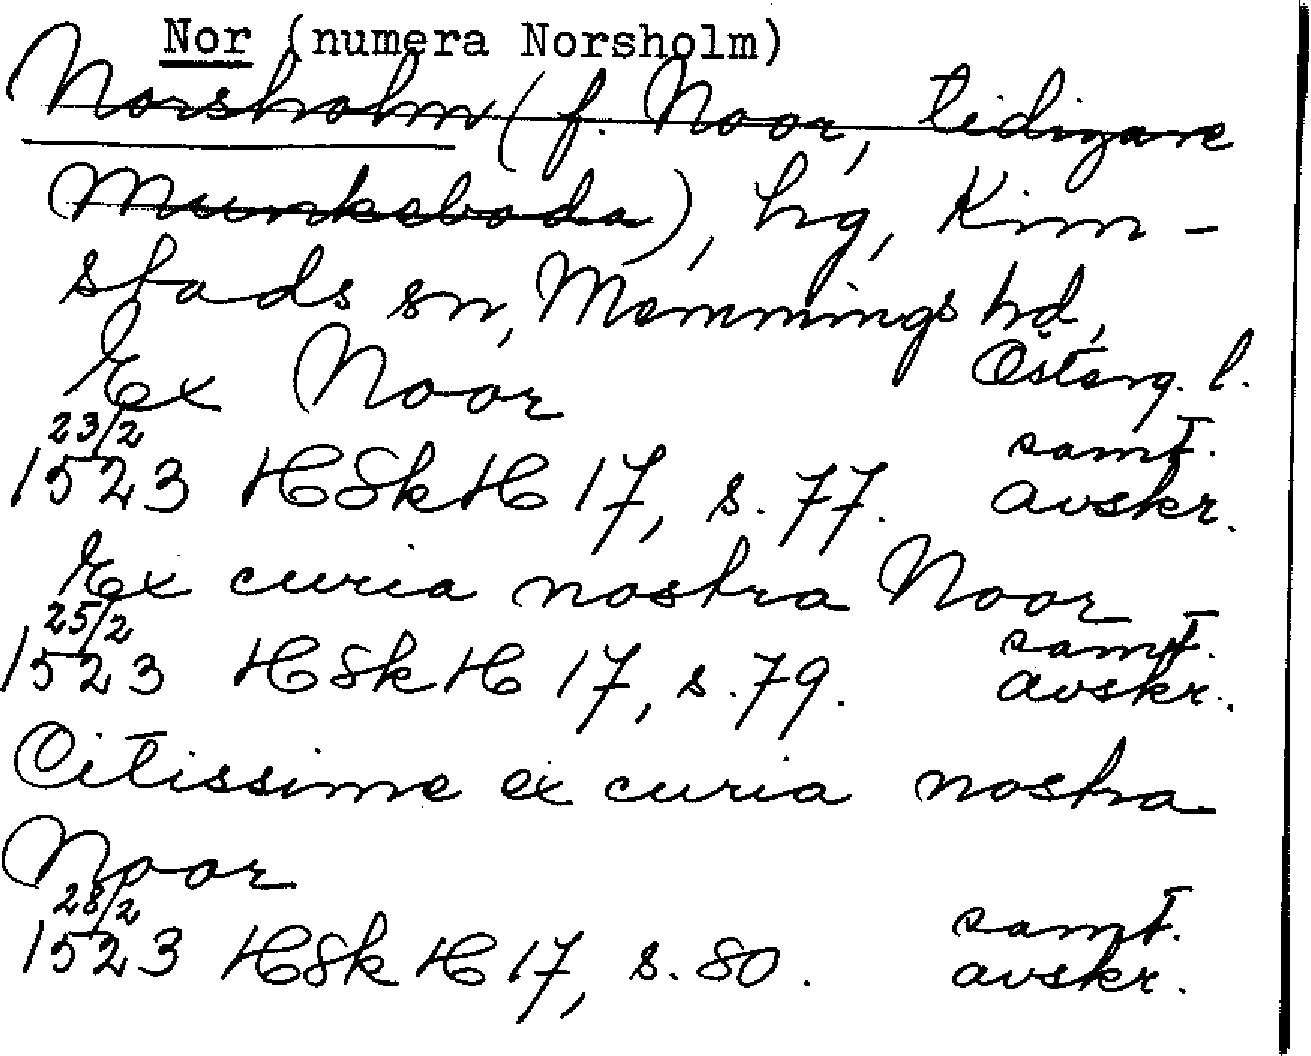 Nor (numera Norsholm)
Norsholm (f. Noor, tidigare
Munkeboda), hg, Kim-
stads sn, Memmings hd,
Ex Noor Österg. l.
23/2 samt.
1523 HSkH 17, s. 77. avskr.
Ex curia nostra Noor
25/2 samt.
1523 HSkH 17, s. 79. avskr.
Citissime ex curia nostra
Noor
28/2 samt.
1523 HSkH 17, s. 80. avskr.